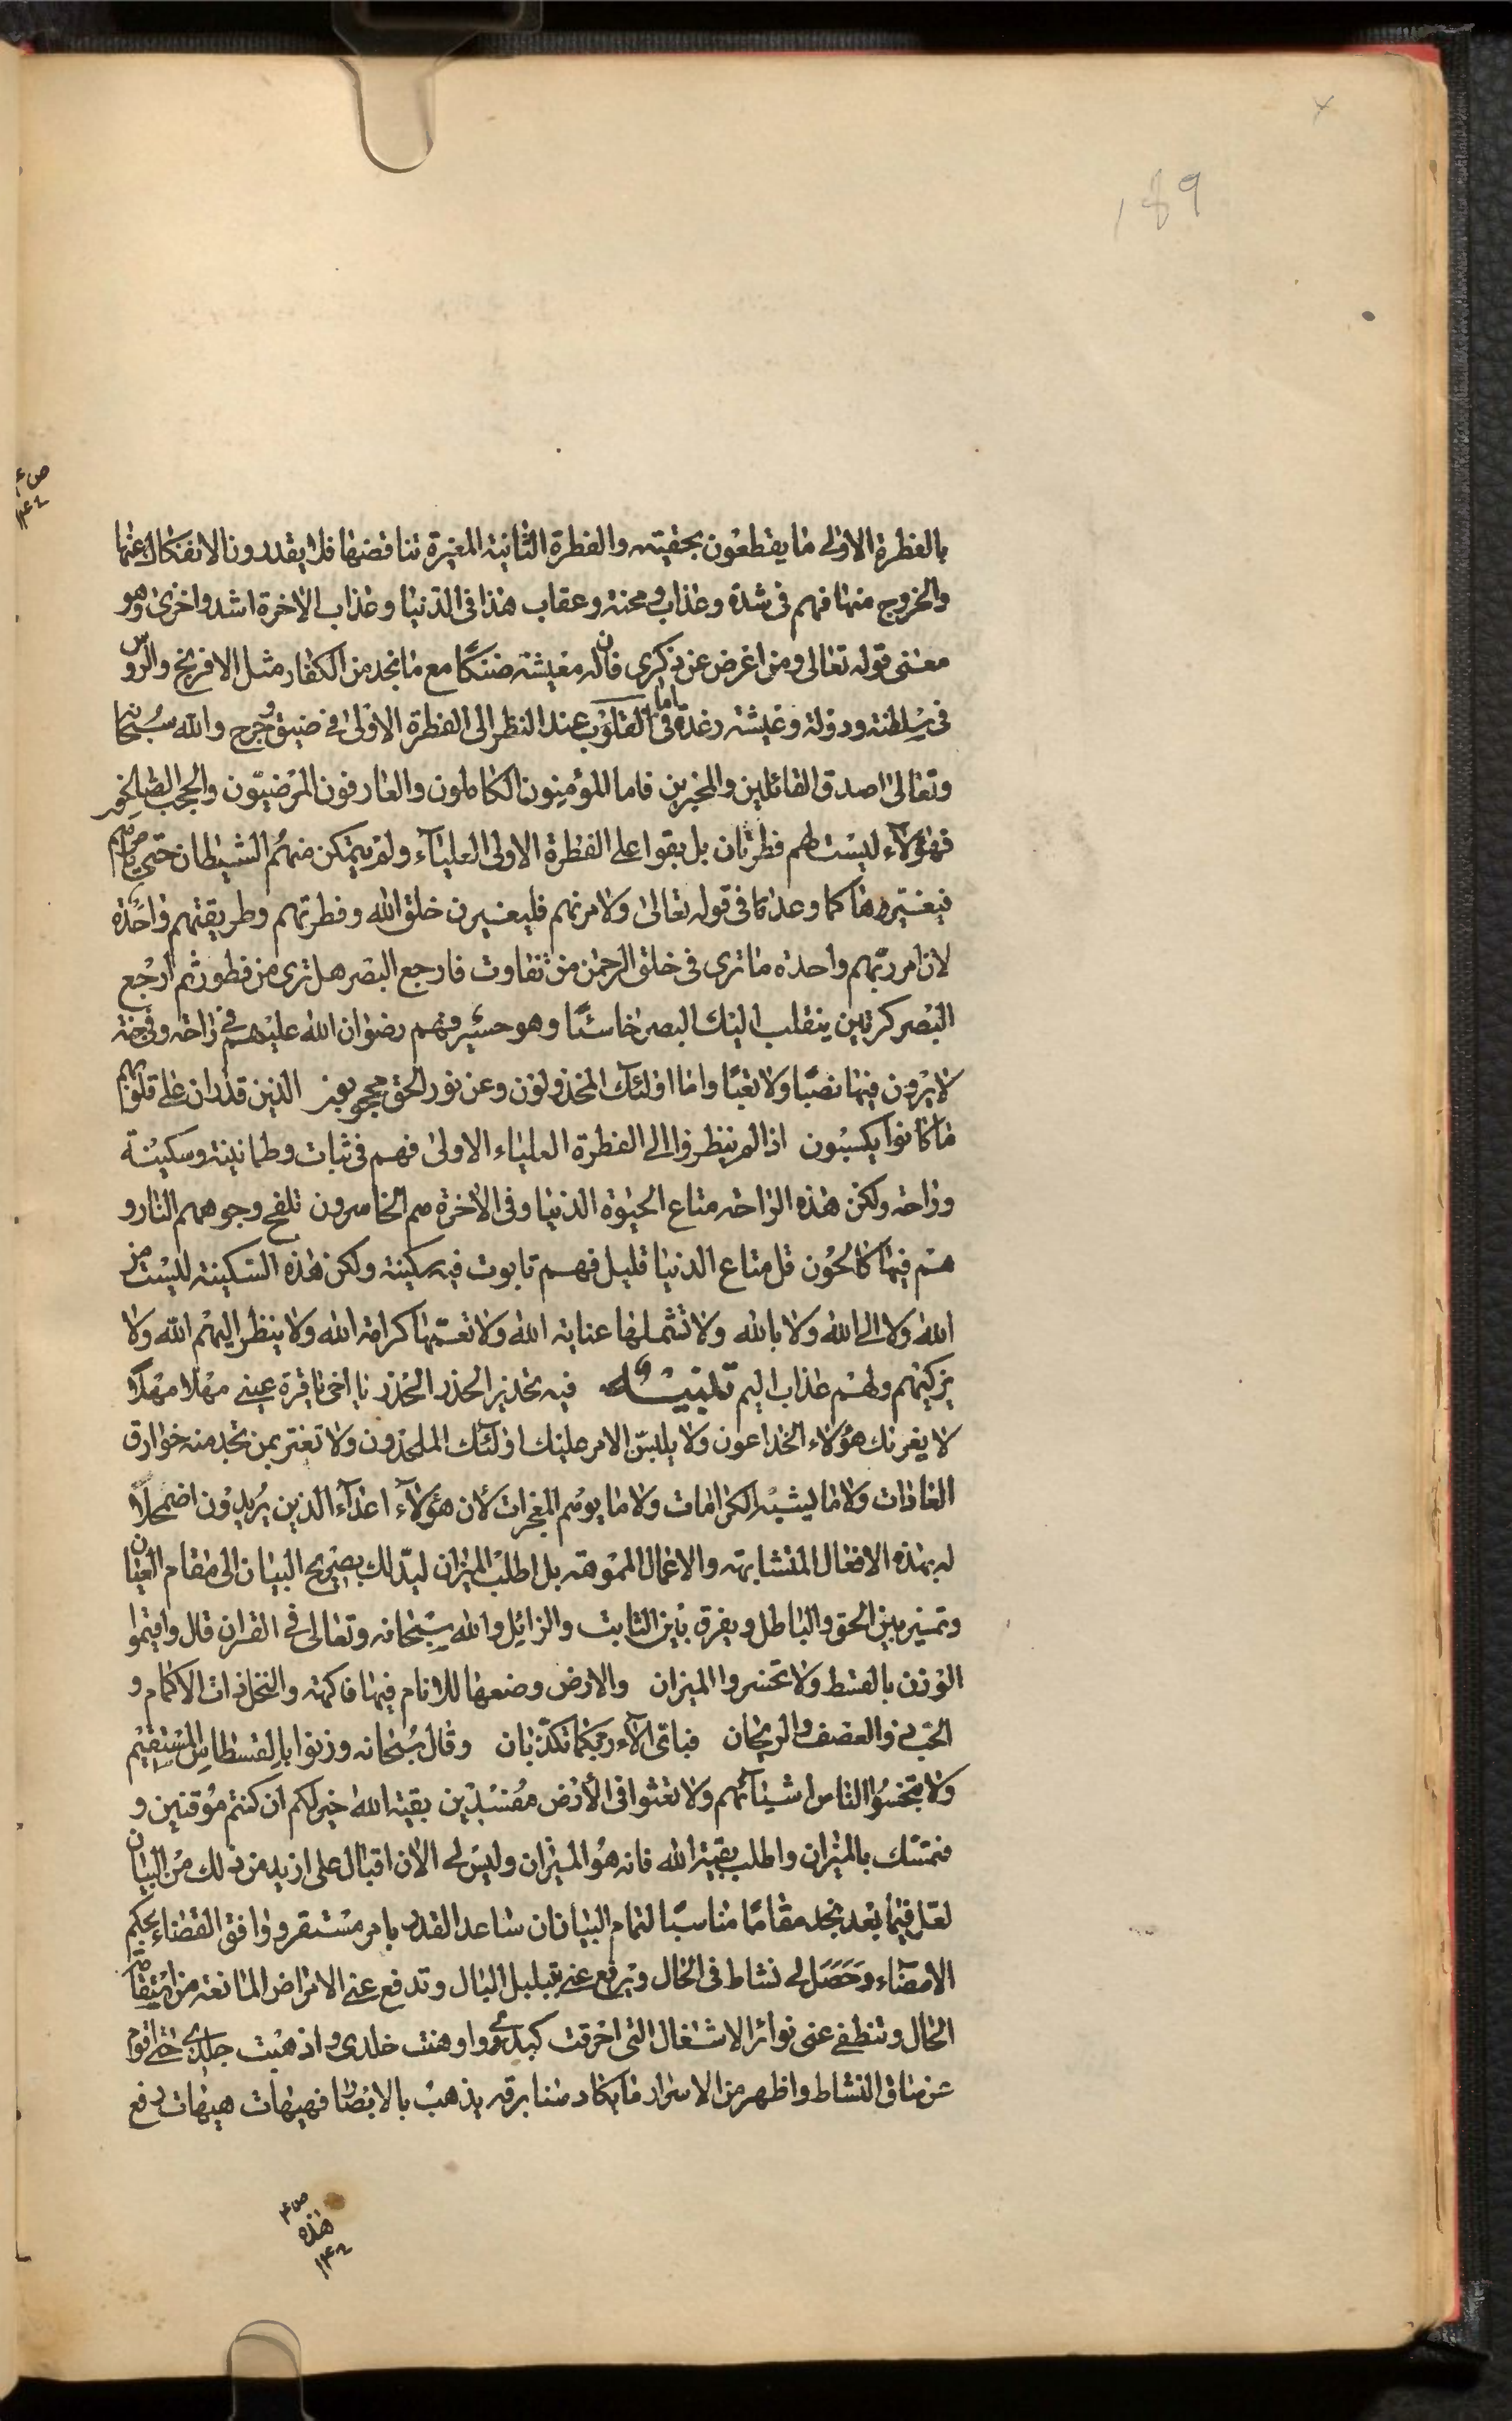 189
بالفطرة الاولى ما يقطعون بحقيته والفطرة الثانية المغيرة تناقضها فلا يقدرون الانفكاك عنها
والخروج منها فهم فى شدة وعذاب ومحنة وعقاب هذا فى الدنيا وعذاب الاخرة اشد واخزى وهو
معنى قوله تعالى ومن اعرض عن ذكرى فان له معيشة ضنكًا مع ما نجد من الكفار مثل الافرنج والروس
فى سلطنة ودولة وعيشة رغدة اما فى القلوب عند النظر الى الفطرة الاولى فى ضيق وحرج والله سبحانه
وتعالى اصدق القائلين والمخبرين فاما المؤمنون الكاملون والعارفون المرضيّون والحجب الصالحون
فهؤلآء ليست لهم فطرتان بل بقوا على الفطرة الاولى العليآء ولم يتمكن منهم الشيطان حتى يأمرهم
فيغيّروها كما وعد كما فى قوله تعالى ولامرنهم فليغيرن خلق الله وفطرتهم وطريقتهم واحدة
لان امر ربّهم واحدة ما ترى فى خلق الرحمن من تفاوت فارجع البصر هل ترى من فطور ثم ارجع
البصر كرتين ينقلب اليك البصر خاسئًا وهو حسير وهم رضوان الله عليهم فى راحة وفى جنة
لا يرون فيها نصبًا ولا تعبًا واما اولئك المخذولون وعن نور الحق محجوبون الذين قد ران على قلوبهم
ما كانوا يكسبون اذا لم ينظروا الى الفطرة العلياء الاولى فهم فى ثبات وطمانينة وسكينة
وراحة ولكن هذه الراحة متاع الحيوة الدنيا وفى الاخرة هم الخاسرون تلفح وجوههم النار و
هم فيها كالحون قل متاع الدنيا قليل فهم تابوت فيه سكينة ولكن هذه السكينة ليست من
الله ولا الى الله ولا بالله ولا تشملها عناية الله ولا تعمّها كرامة الله ولا ينظر اليهم الله ولا
يزكيهم ولهم عذاب اليم تنبيه فيه تحذير الحذر الحذر يا اخى يا قرة عينى مهلا مهلا
لا يغرنك هؤلاء الخداعون ولا يلبس الامر عليك اولئك الملحدون ولا تغتر بمن تجد منه خوارق
العادات ولا ما يشبه الكرامات ولا ما يوهم المعجزات لأن هؤلآء اعدآء الذين يريدون اضمحلالًا
له بهذه الافعال المتشابهة والاعمال المموهة بل اطلب الميزان ليدلك بصريح البيان الى مقام العيان
وتميز بين الحق والباطل ويفرق بين الثابت والزائل والله سبحانه وتعالى فى القران قال واقيموا
الوزن بالقسط ولا تخسروا الميزان والارض وضعها للانام فيها فاكهة والنخل ذات الاكمام و
الحب ذو العصف والريحان فباى الآء ربكما تكذبان وقال سبحانه وزنوا بالقسطاس المستقيم
ولا تبخسوا الناس اشيائهم ولا تعثوا فى الأرض مفسدين بقية الله خير لكم ان كنتم مؤقنين و
فتمسّك بالميزان واطلب بقية الله فانه هو الميزان وليس لى الان اقبال على ازيد من ذلك من البيان
لعل فيما بعد نجد مقامًا مناسبًا لتمام البيان ان ساعد القدر بامر مستقر ووافق القضاء بحكم
الامضآء وحصل لى نشاط فى الحال ويرفع عنى تبلبل البال وتدفع عنى الامراض المانعة من استقامة
الحال وتنطفى عنى نوائر الاشتغال التى احرقت كبدى واوهنت خلدى واذهبت جلدى حتى اقوم
عن ساق النشاط واظهر من الاسرار ما يكاد سنا برقه يذهب بالابصار فهيهات هيهات رفع